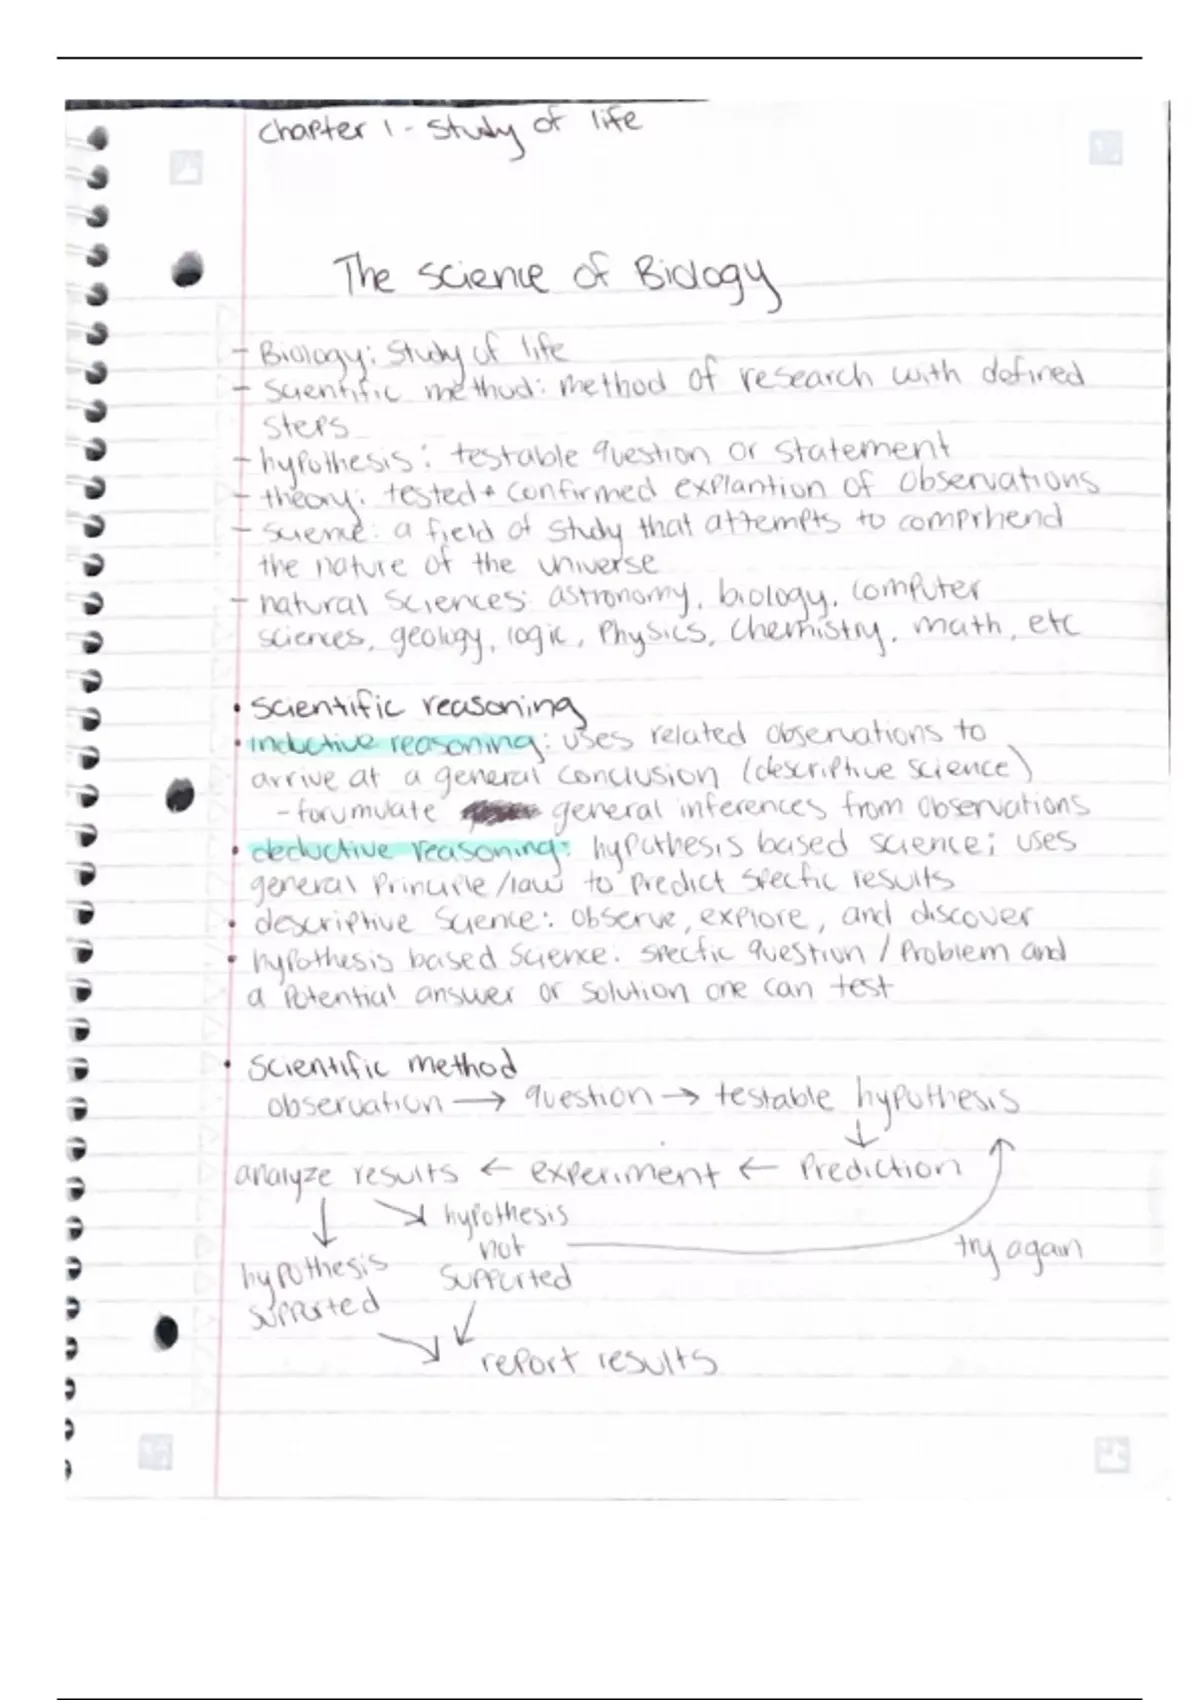 Chapter 1 - Study of life
The science of Biology
- Biology: Study of life
- Scientific method: method of research with defined
steps
- hypothesis: testable question or statement
- theory: tested + confirmed explantion of observations
- science: a field of study that attempts to comprhend
the nature of the universe
- natural sciences: astronomy, biology, computer
sciences, geology, logic, physics, chemistry, math, etc
• scientific reasoning
• inductive reasoning: uses related observations to
arrive at a general conclusion (descriptive science)
- forumulate general inferences from observations
• deductive reasoning: hypothesis based science; uses
general principle/law to predict specfic results
• descriptive science: observe, explore, and discover
• hypothesis based science: specfic question / problem and
a potential answer or solution one can test
• Scientific method
observation → question → testable hypothesis
analyze results ← experiment ← prediction
hypothesis
not
supported
try again
hypothesis
supported
report results